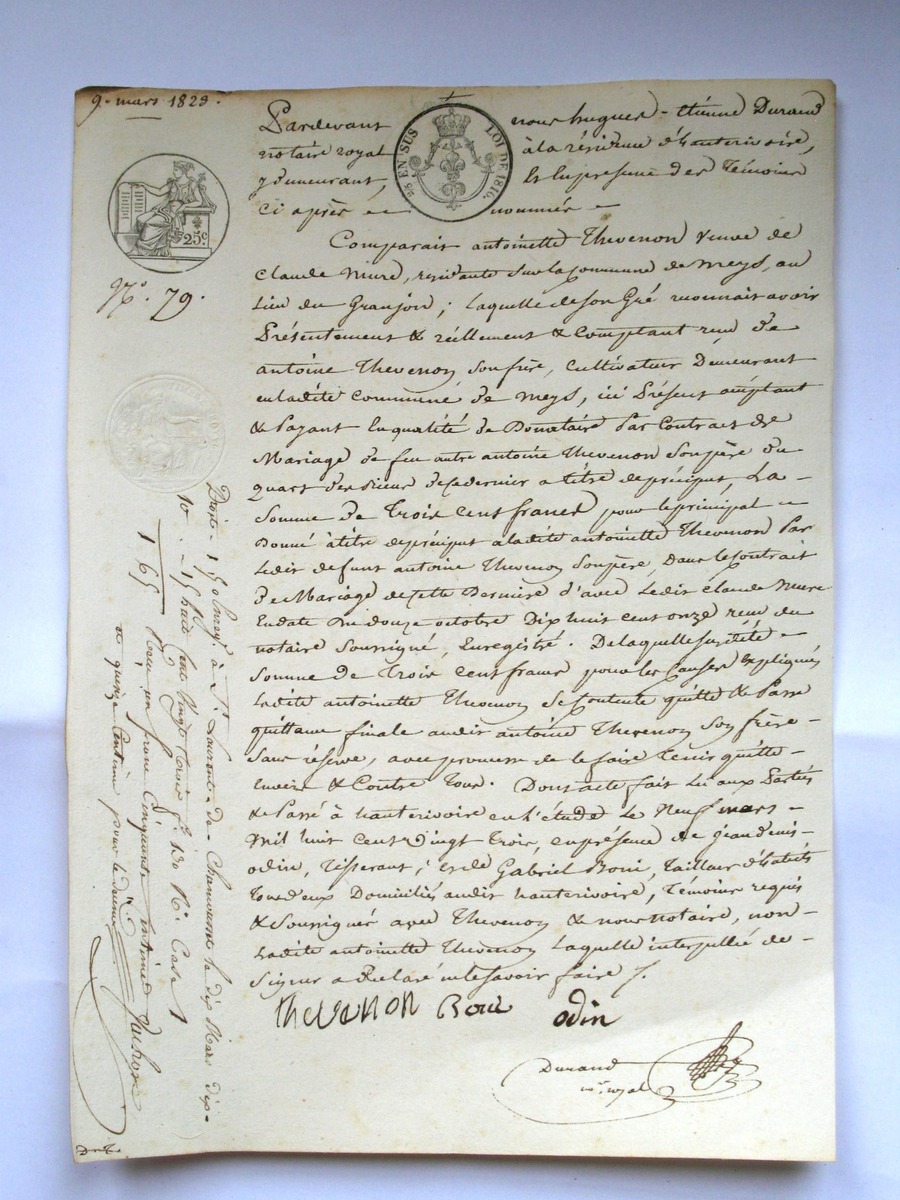 9. mars 1823.
Pardevant nous hugues-étienne Durand
notaire royal à la résidence d'hauterivoire,
y demeurant, & en présence des Témoins
ci après nommés
¼ EN SUS LOI DE 1816.
25c
N.º 79.
Comparait antoinette Thevenon veuve de
Claude mure, résidante sur la Commune de meys, au
Lieu du Granjon; laquelle de son Gré reconnait avoir
Présentement & réellement & Comptant reçu de
antoine Thevenon son frère, Cultivateur Demeurant
en ladite Commune de meys, ici Présent acceptant
& Payant En qualité de Donataire Par Contract de
Mariage de feu autre antoine Thevenon Son père du
quart des biens de ce dernier a titre de préciput, La
Somme de Trois Cent francs pour le principal
Donné à titre de préciput a ladite antoinette Thevenon Par
Ledit defunt antoine Thevenon Son père, Dans le Contrait
de Mariage de cette Dernière d'avec Ledit Claude Mure
En date du douze octobre Dix huit cent onze reçu du
notaire Soussigné, Enregistré. De laquelle susditte
Somme de Trois Cent francs pour les Causes Expliqués
Ladite antoinette Thevenon Se Contente quitte & Passe
quittance finale audit antoine Thevenon Son frère
Sans réserve, avec promesse de le faire Tenir quitte
Envers & Contre Tous. Dont acte fait Lu aux Parties
& Passé à hauterivoire en l'étude Le Neuf mars
Mil huit Cent vingt Trois, en présence de Jean denis
odin, Tisserant; et de Gabriel Boni, Tailleur d'habits
Tous deux Domiciliés audit hauterivoire, Témoins requis
& Soussignés avec Thevenon & nous notaire, non
Ladite antoinette Thevenon Laquelle interpellée de
Signer a Déclaré ne le savoir faire /.
Thevenon Boni odin
Durand
nre royal
Droits 1 50 Enreg. à St Laurent-de-Chamousset le dix Mars dix
10 . - 15 huit Cent Vingt Trois fº 130 Rº Case 1
1 65 Reçu un franc Cinquante Centimes
et quinze Centimes pour le dixième